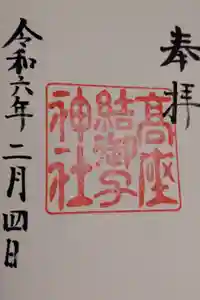 奉拝
高座
結御子
神社
令和六年二月四日